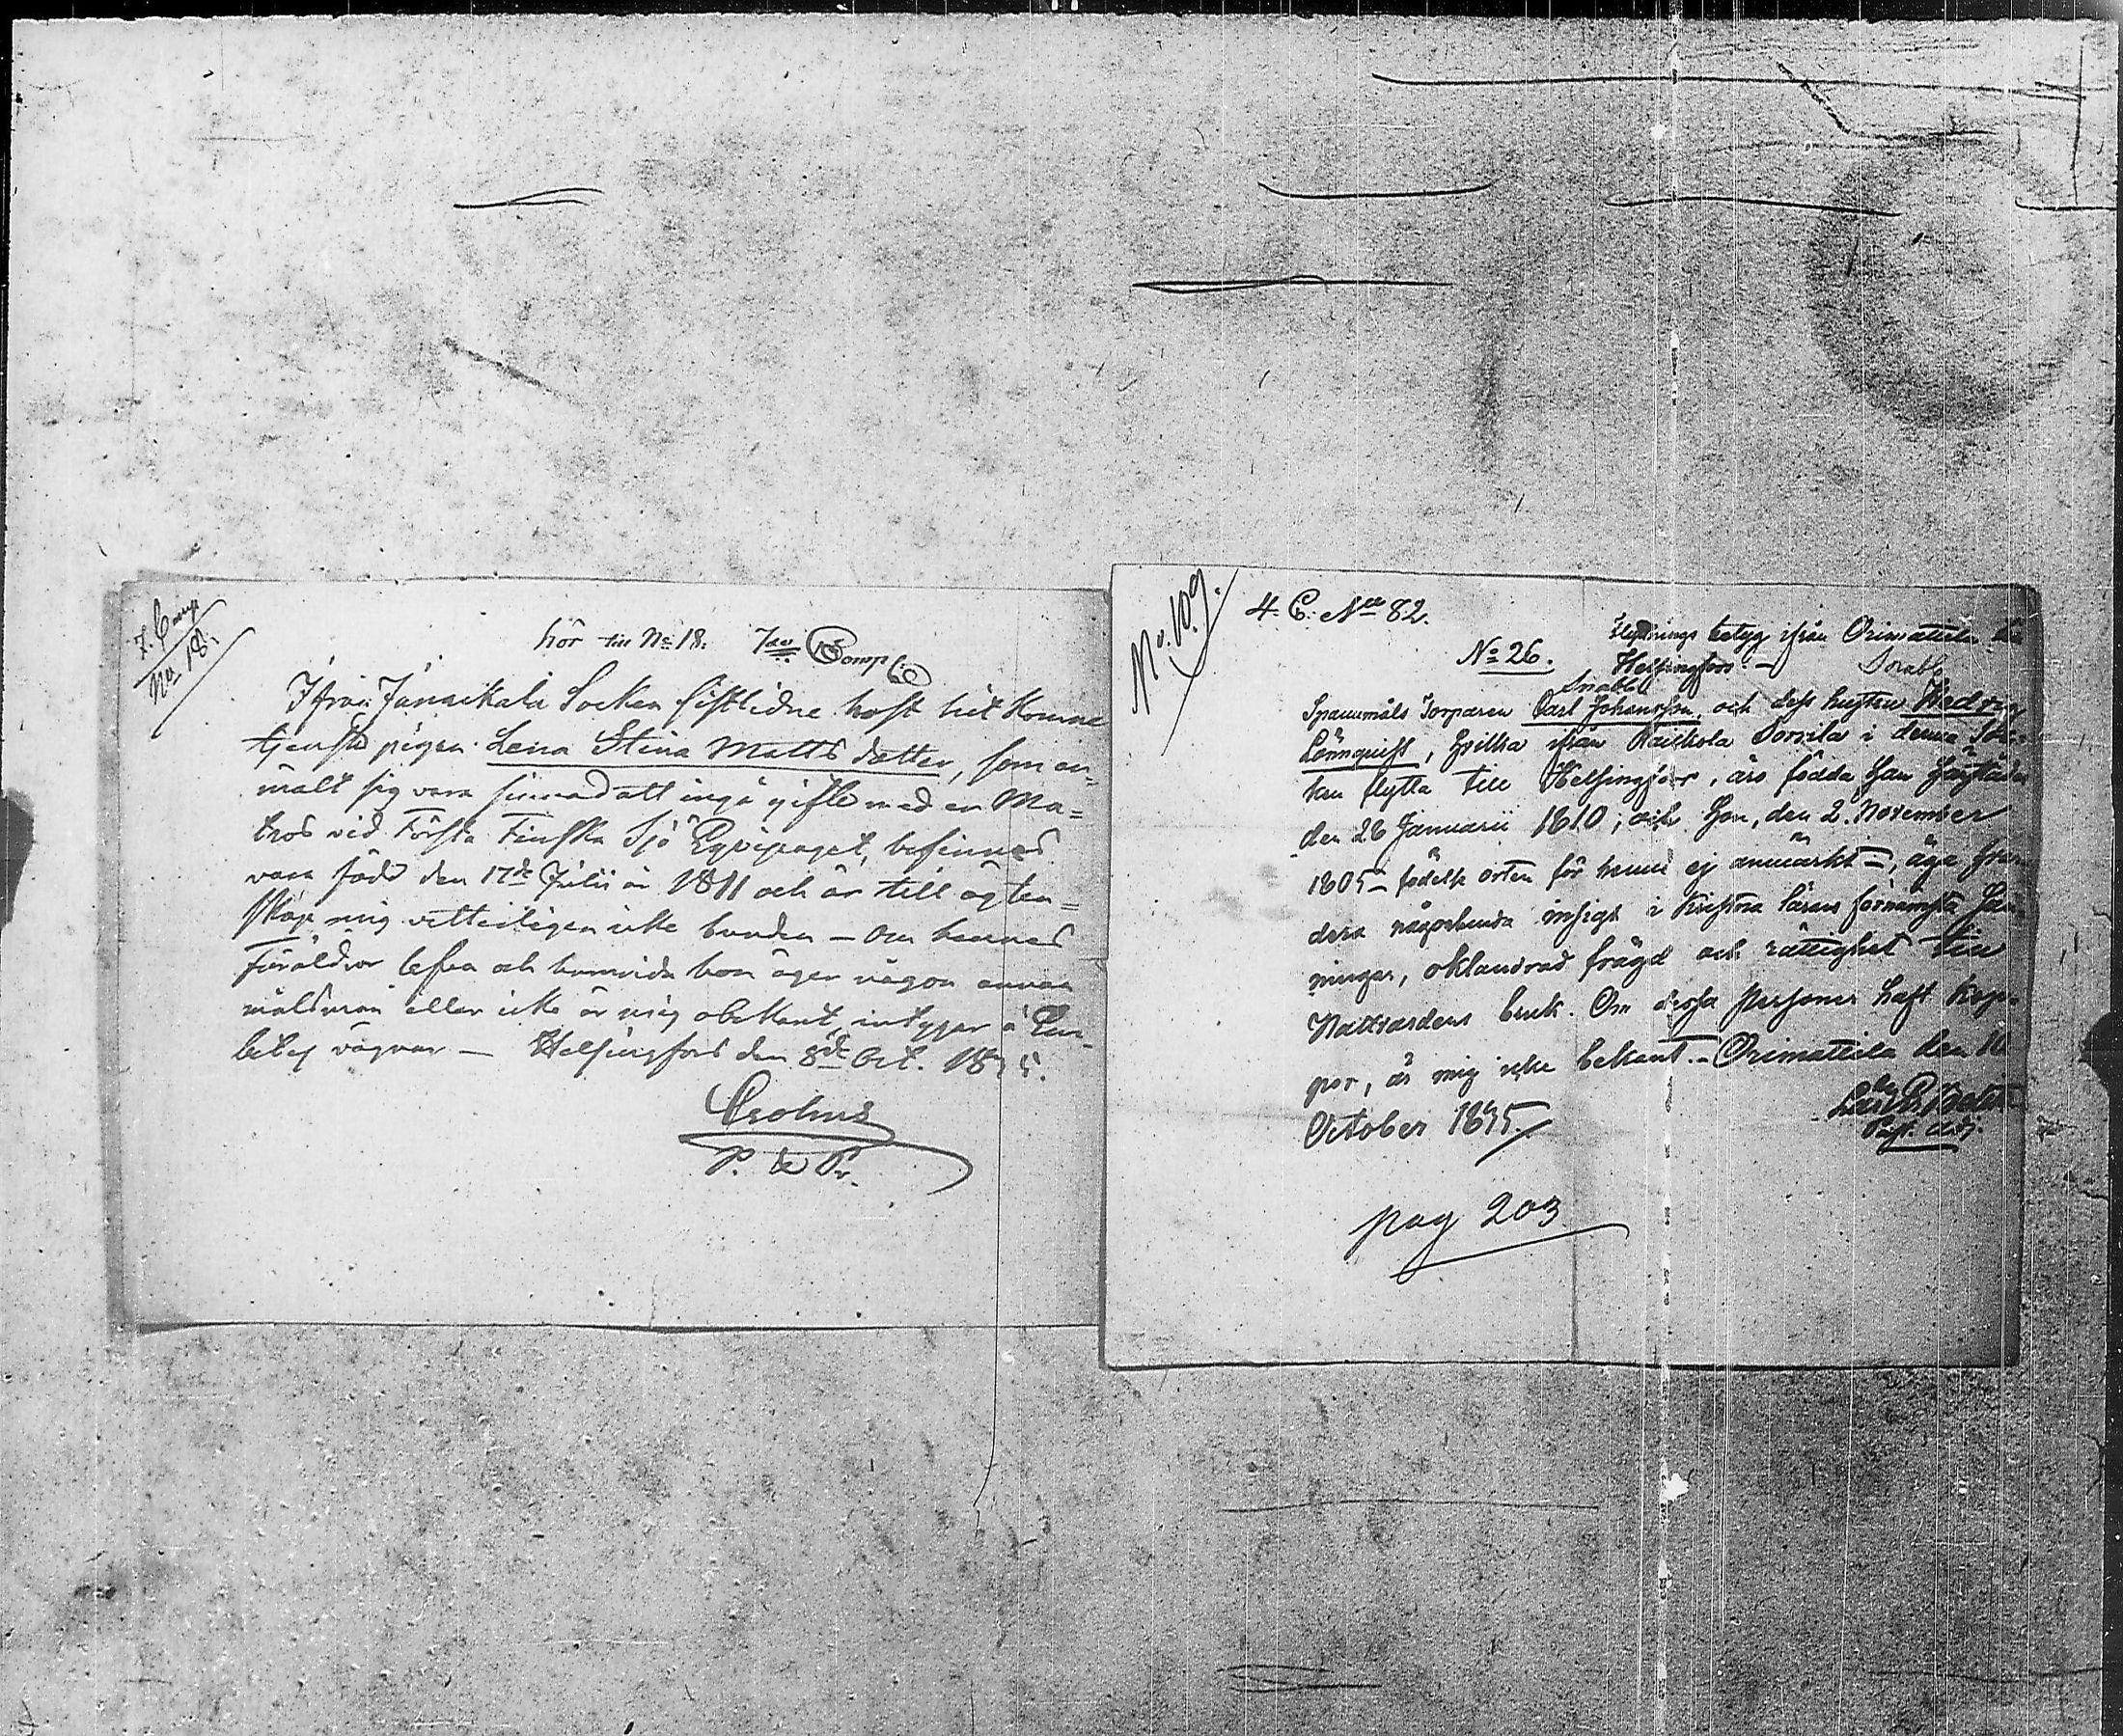 7. Comp
No 18.
hör till No 18. 7de Comp:
Ifrån Janakala Socken sistlidne höst hit komne
tjenste pigan Lena Stina Matts dotter, som an-
mält sig vara sinnad att ingå gifte med en Ma=
tros vid Första Finska Sjö Eqvipaget, befinnes
vara född den 17de Julii år 1811 och är till ägten=
skap mig vetterligen icke bunden – Om hennes
Föräldrar lefva och huruvida hon äger någon annan
målsman eller icke är mig obekant, intygar å
vägnar – Helsingfors den 8de Oct.
Crohns
No. 109.
4. C: No 82.
No 26.
Flyttnings betyg ifrån Orimattila till
Helsingfors. –
Snabb
Snabb
Spannmåls Torparen Carl Johansson, och dess hustru Hedvig
Lönnquist, hvilka ifrån Raikola Sorvila i denna Soc-
ken flytta till Helsingfors, äro födda han härstädes
den 26 Januarii 1810; och hon, den 2. November
1805 – födelse orten för henne ej anmärkt –, äga
dera någorlunda insigt i Kristna lärans förnämsta san-
ningar, oklandrad frägd och rättighet till
Nattvardens bruk. Om dessa Personer haft kop-
por, är mig icke bekant. – Orimattila den 16
October 1845.
Past. adj.
pag 203